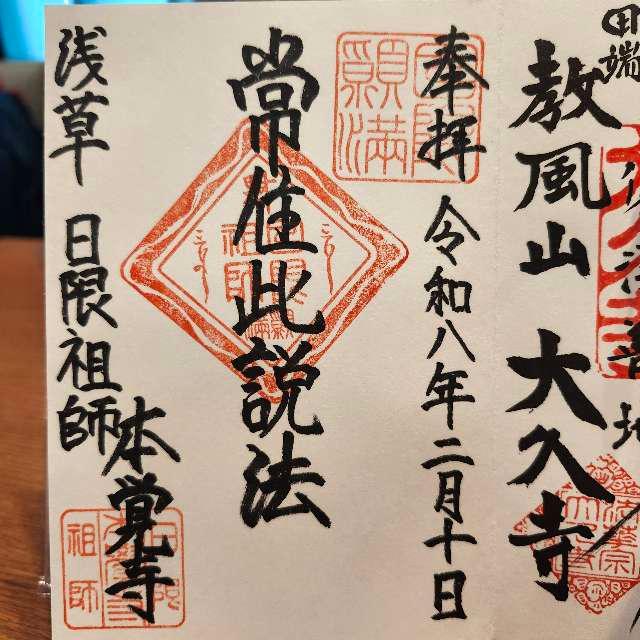 田端
教風山 大久寺
奉拝 令和八年二月十日
常住此説法
浅草 日限祖師
本覚寺
祖師